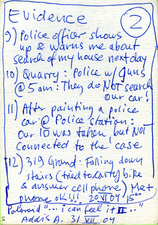 Evidence
2
9) Police officer shows
up & warns me about
search of my house next day
10) Quarry: Police w/ guns
@ 5am: They do NOT search
our car!
11) After painting a police
car @ Police station:
Our ID was taken but NOT
connected to the case
12) 319 Grand: Falling down
stairs (tried to carry bike
& answer cell phone) Met
phone 20 VI 04
Polaroid "...I can feel it II..."
Addis A. 31 VII 04